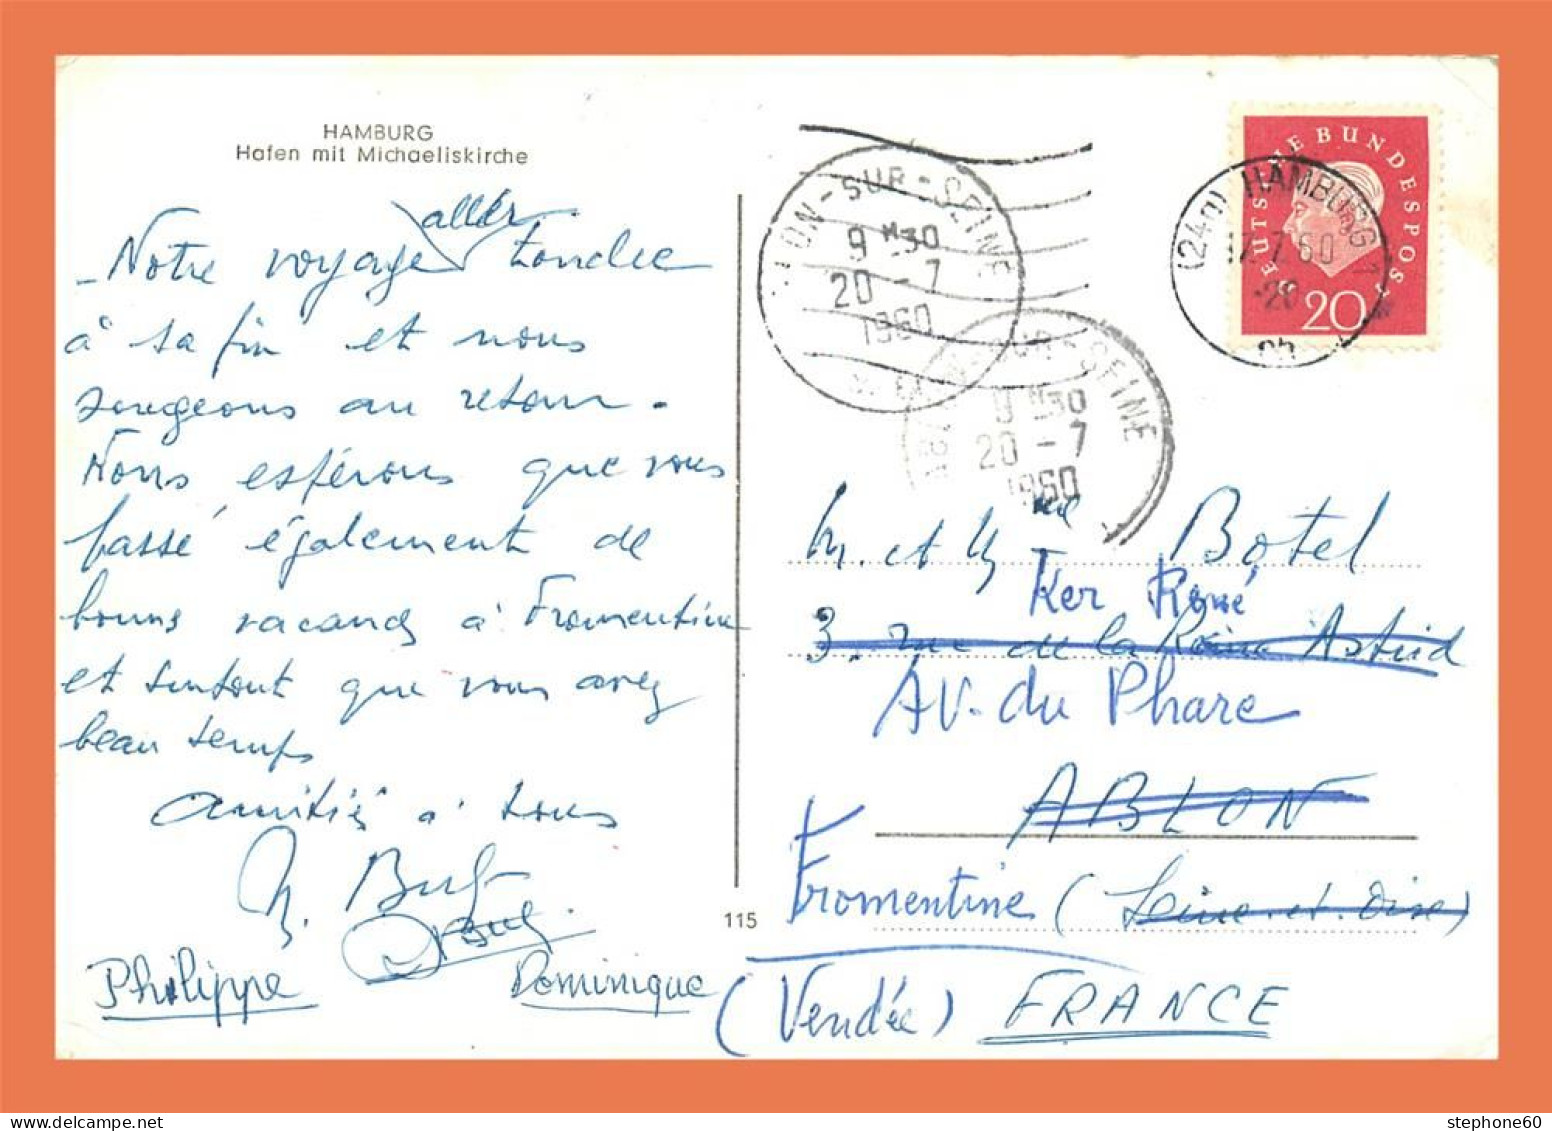 HAMBURG
Hafen mit Michaeliskirche
aller
- Notre voyage touche
à sa fin et nous
songeons au retour.
Nous espérons que vous
passé également de
bonnes vacances à Fromentine
et surtout que vous avez
beau temps
amitiés à tous
Philippe
Dominique
115
DEUTSCHE BUNDESPOST
20
(24a) HAMBURG 1
17.7.60
-20
LON-SUR-SEINE
9 H 30
20 - 7
1960
SUR-SEINE
9 H 30
20 - 7
1960
M. et Botel
Ker René
3. rue de la Reine Astrid
Av. du Phare
ABLON
Fromentine (Seine-et-Oise)
(Vendée) FRANCE
stephone60